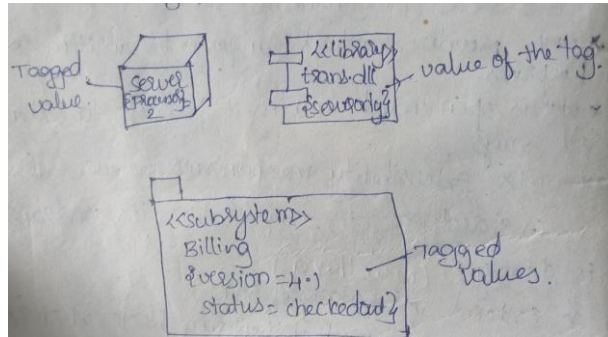 Tagged
value.
server
{processors=
2
<<library>>
trans.dll
{serveronly}
value of the tag.
<<subsystem>>
Billing
{version = 4.1
status = checkedout}
Tagged
values.